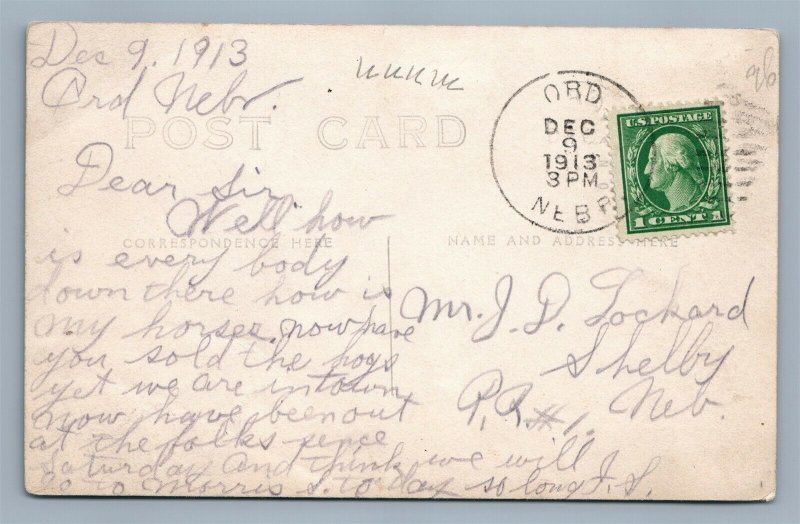 Dec 9. 1913
Ord Nebr.
POST CARD
ORD
DEC
9
1913
3 PM
NEBR
U.S. POSTAGE
1 CENT 1
Dear Sir.
Well how
CORRESPONDENCE HERE
is every body
down there how is
my horses. now have
you sold the hogs
yet we are in town
now have been out
at the folks sence
Saturday and think we will
go to Morris S. to day so long J. S.
NAME AND ADDRESS HERE
Mr. J. D. Lockard
Shelby
Neb.
R.R. #1.
96